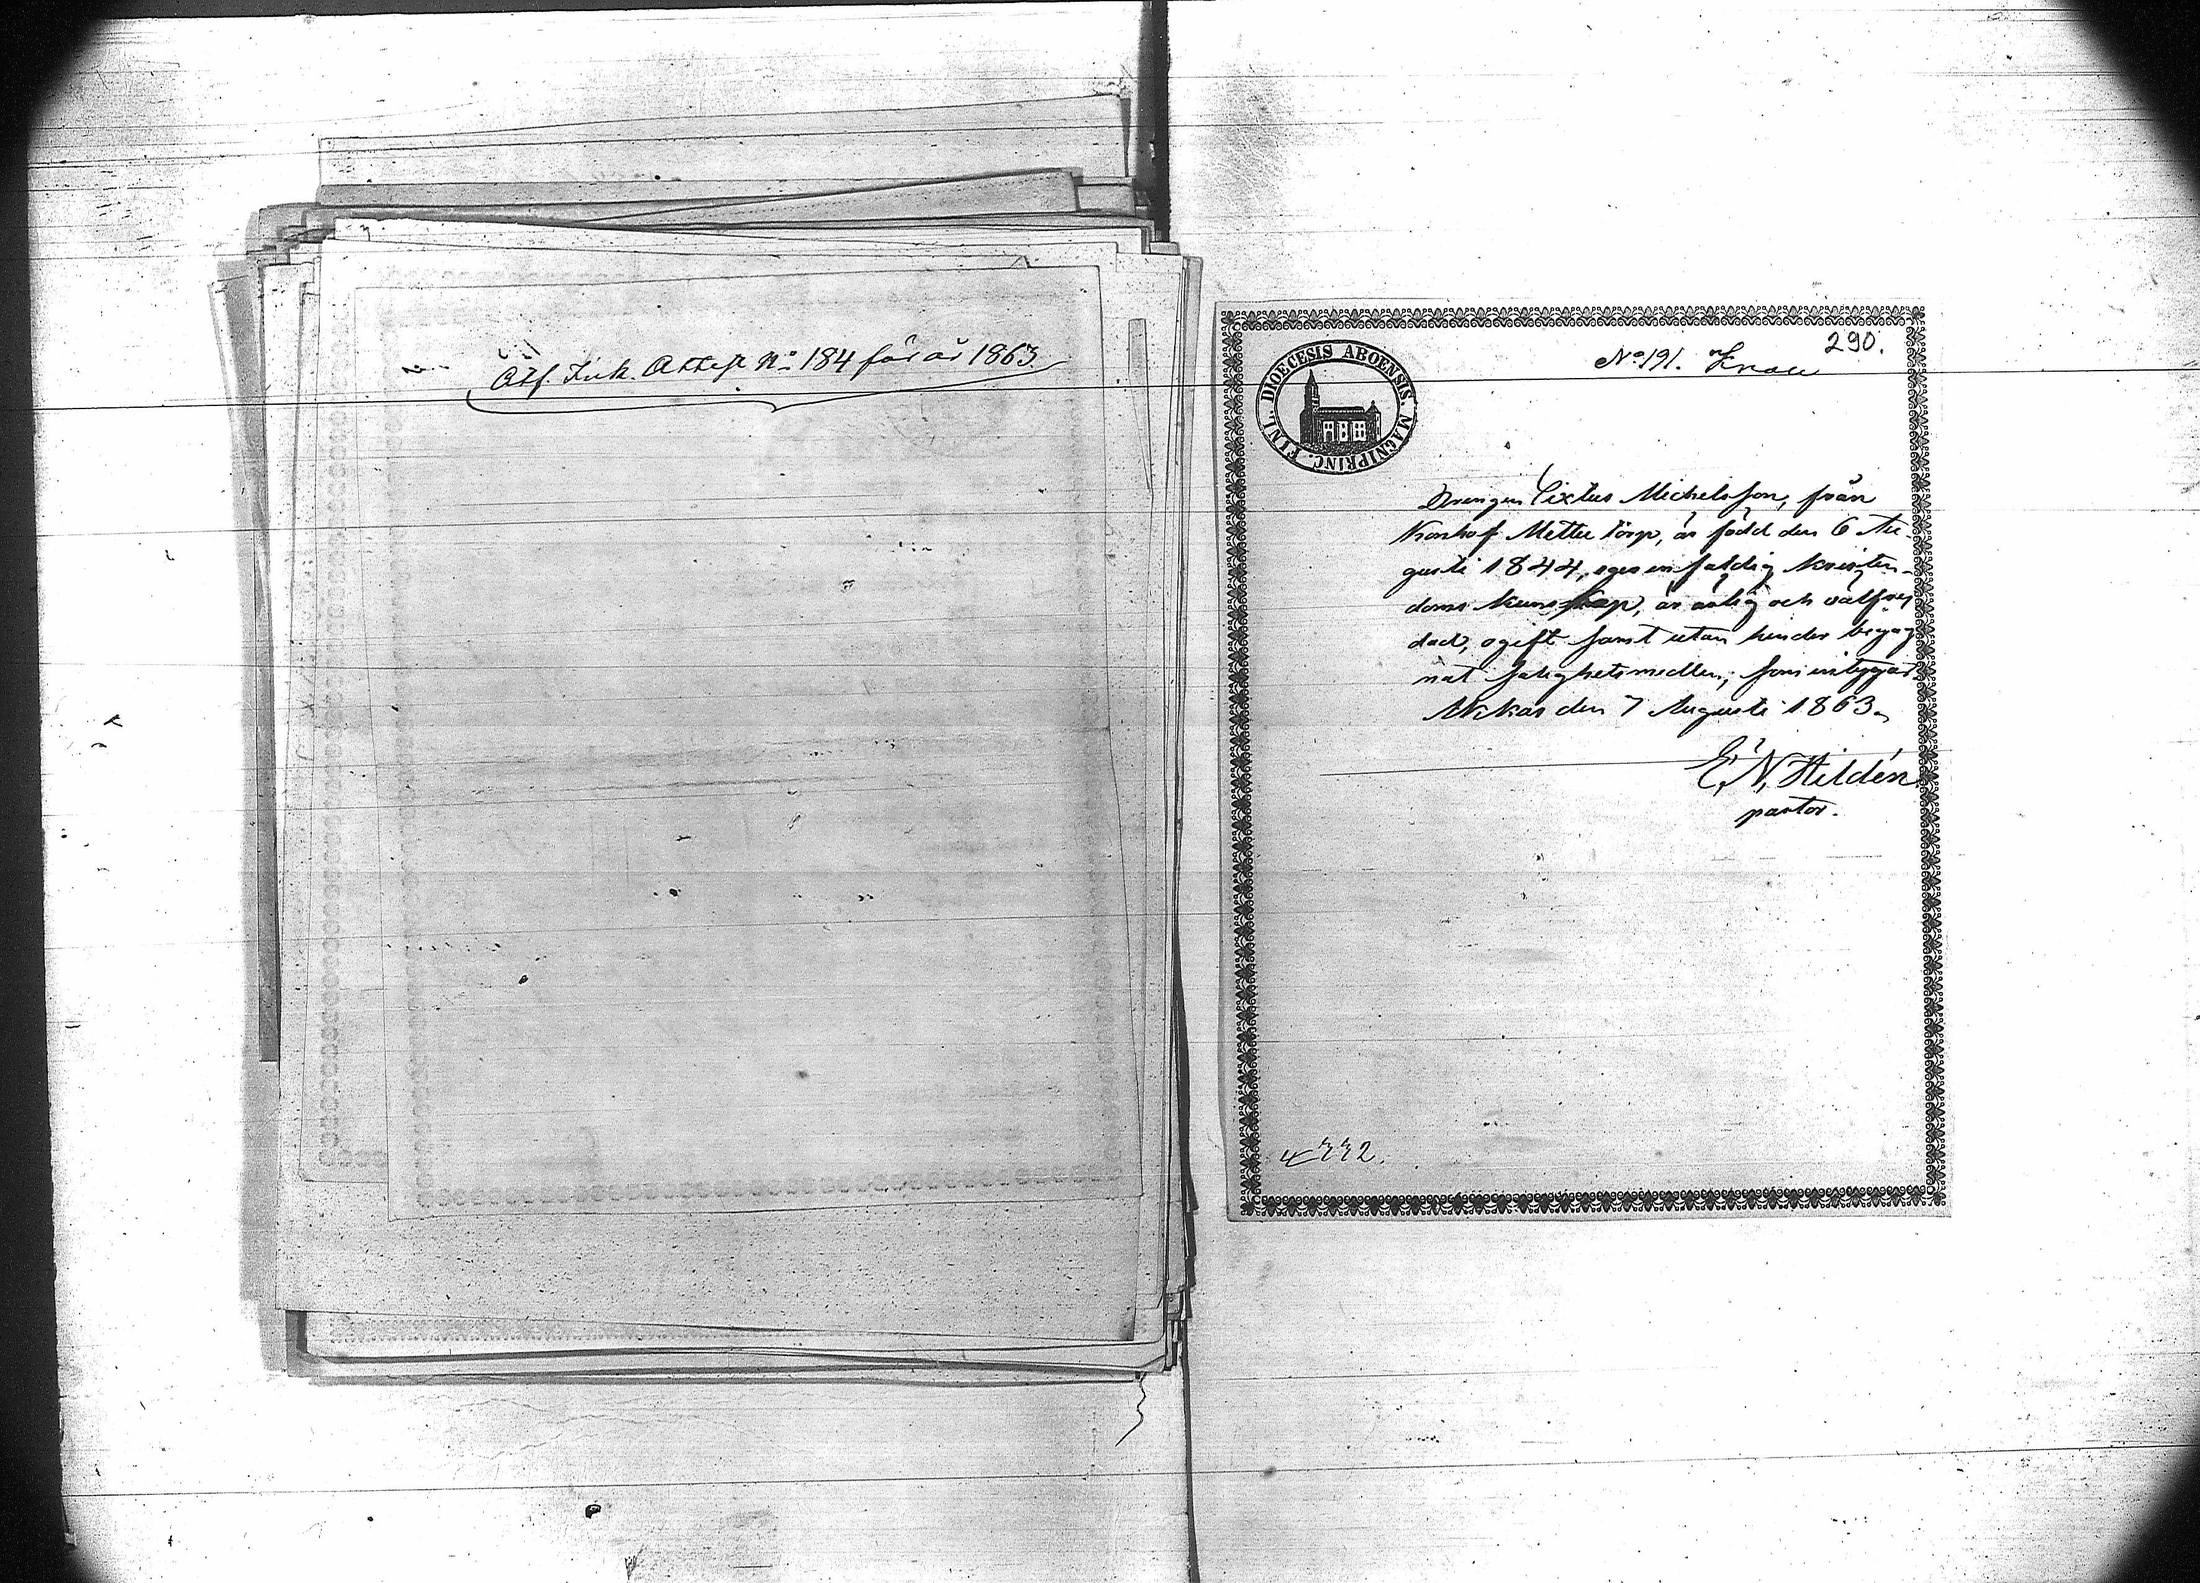 Att. Ink. Attest No 184 för år 1863.
290.
No 191.
FINL. DIOECESIS ABOENSIS. MAGNIPRINC.
Drengen Sixtus Michelsson, från
Konhof Mettu torp, är född den 6 Au-
gusti 1844, eger enfaldig kristen-
doms kunskap, är ärlig och välfrej
dad, ogift samt utan hinder begag
nat salighetsmedlen; som intygas.
Akkas den 7 Augusti 1863.
E. N. Hildén
pastor.